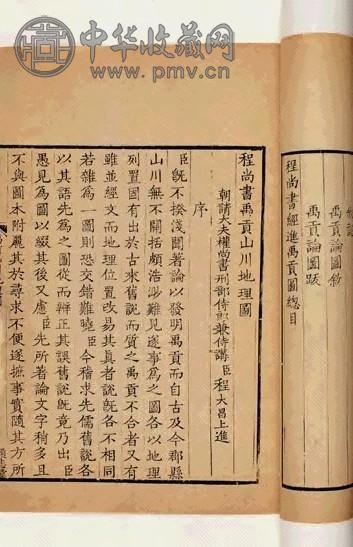 中华收藏网
www.pmv.cn
禹貢論圖敘
禹貢論圖跋
程尚書經進禹貢圖總目
程尚書禹貢山川地理圖
朝請大夫權尚書刑部侍郎兼侍講臣程大昌上進
序
臣旣不揆淺聞著論以發明禹貢而自古及今郡縣
山川無不開括頗浩渺難見遂事為之圖各以地理
列置固有出於古來舊說而質之禹貢不合者又有
雖並經文而地理位置改易其真者說各不相同
若雜為一圖則恐交錯難曉臣今稽求先儒舊說各
以其語先為之圖從而辯正其誤舊說旣竟乃出臣
愚見為圖以綴其後又慮臣先所著論文字稍多且
不與圖本附麗其於尋求不不便遂摭事實隨其方所